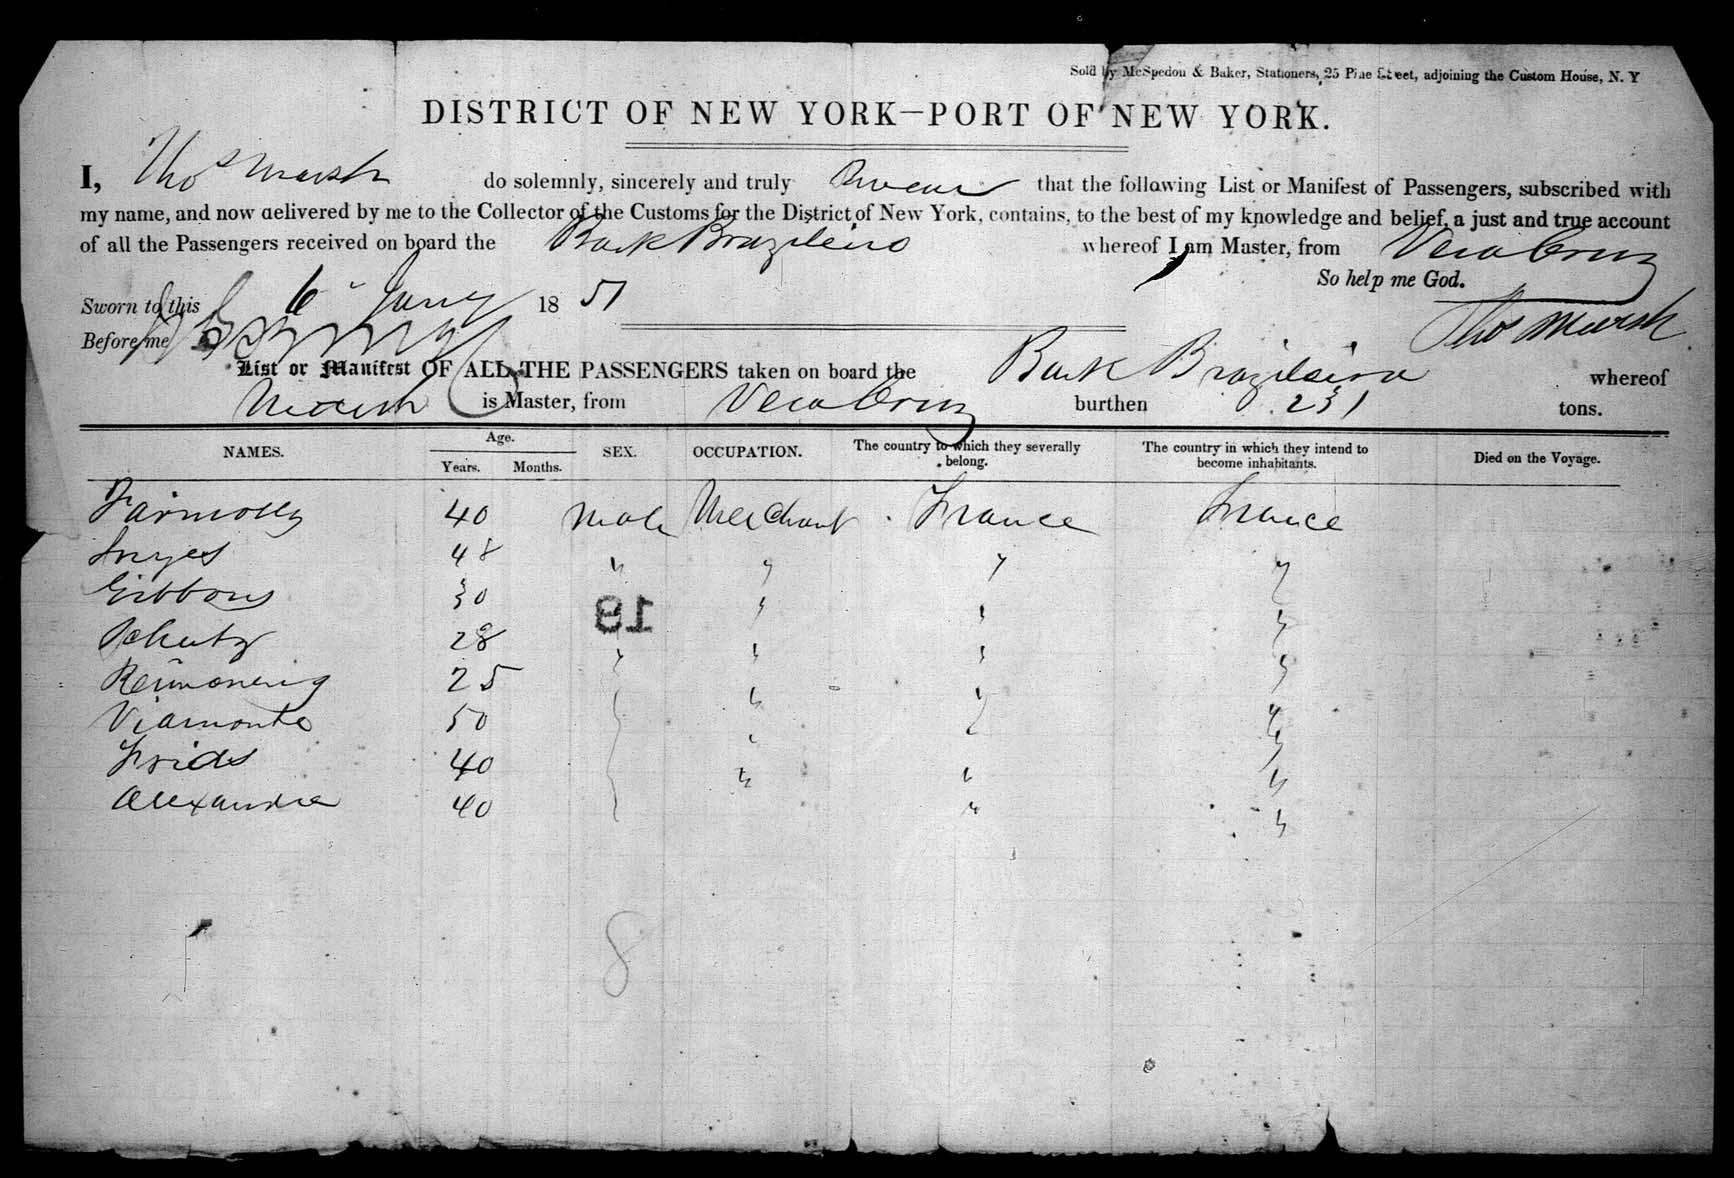 Sold by McSpedon & Baker, Stationers, 25 Pine Street, adjoining the Custom House, N. Y
DISTRICT OF NEW YORK—PORT OF NEW YORK.
I, Thos Marsh do solemnly, sincerely and truly Swear that the following List or Manifest of Passengers, subscribed with
my name, and now delivered by me to the Collector of the Customs for the District of New York, contains, to the best of my knowledge and belief, a just and true account
of all the Passengers received on board the Bark Brazileiro whereof I am Master, from Vera Cruz
So help me God.
Sworn to this 6 Jany 1851
Thos Marsh
Before me
List or Manifest OF ALL THE PASSENGERS taken on board the Bark Brazileiro whereof
Marsh is Master, from Vera Cruz burthen 231 tons.
NAMES. Age. Years. Months. SEX. OCCUPATION. The country to which they severally belong. The country in which they intend to become inhabitants. Died on the Voyage.
40 Male Merchant France France
48 " " " "
Gibbons 30 " " "
Schutz 28 " " " "
25 " " "
Viamonte 50 " " "
40 " " "
Alexandre 40 " "
19
8